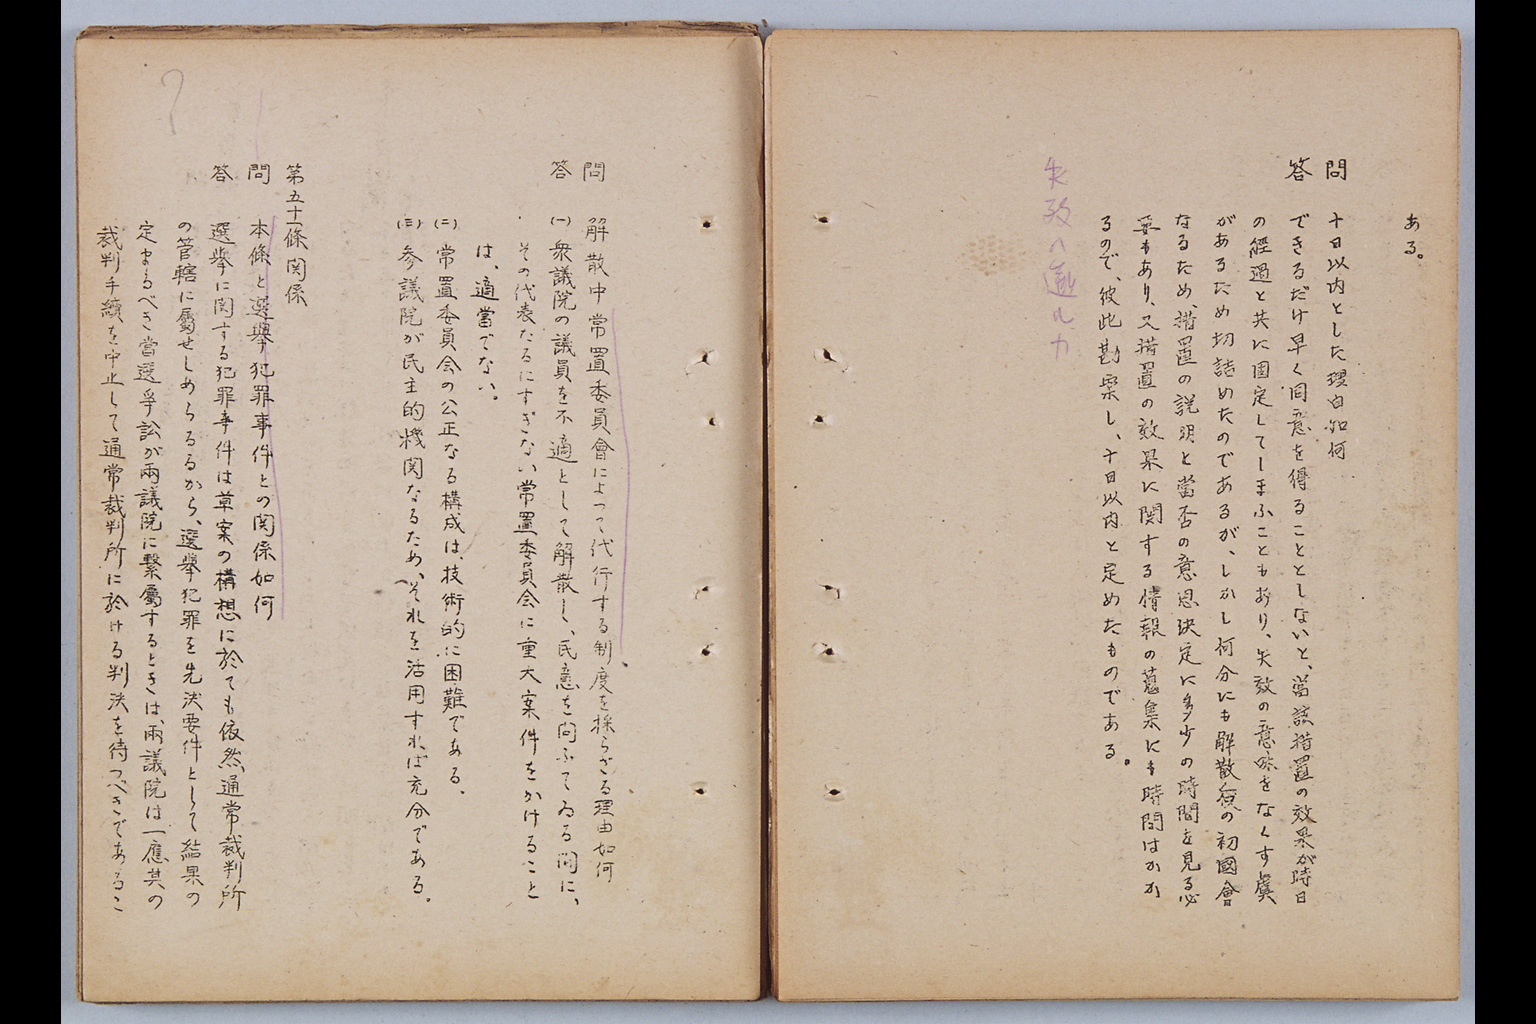 ある。
問 十日以内とした理由如何
答 できるだけ早く同意を得ることとしないと、当該措置の効果が時日
の経過と共に固定してしまふこともあり、失效の意味をなくす虞
があるため切詰めたのであるが、しかし何分にも解散後の初國會
なるため、措置の説明と當否の意思決定に多少の時間を見る必
要もあり、又措置の效果に関する情報の蒐集にも時間はかか
るので、彼此勘案し、十日以内と定めたものである。
失效ハ遡ルカ
問 解散中常置委員會によって代行する制度を採らざる理由如何
答 (一) 衆議院の議員を不適として解散し、民意を問ふてゐる間に、
その代表たるにすぎない常置委員会に重大案件をかけること
は、適當でない。
(二) 常置委員会の公正なる構成は、技術的に困難である、
(三) 参議院が民主的機関なるため、それを活用すれば充分である。
第五十一條関係
問 本條と選擧犯罪事件との関係如何
答 選擧に関する犯罪事件は草案の構想に於ても依然通常裁判所
の管轄に屬せしめらるるから、選擧犯罪を先決要件として結果の
定まるべき當選爭訟が兩議院に繋屬するときは、兩議院は一應其の
裁判手續を中止して通常裁判所に於ける判決を待つべきであるこ